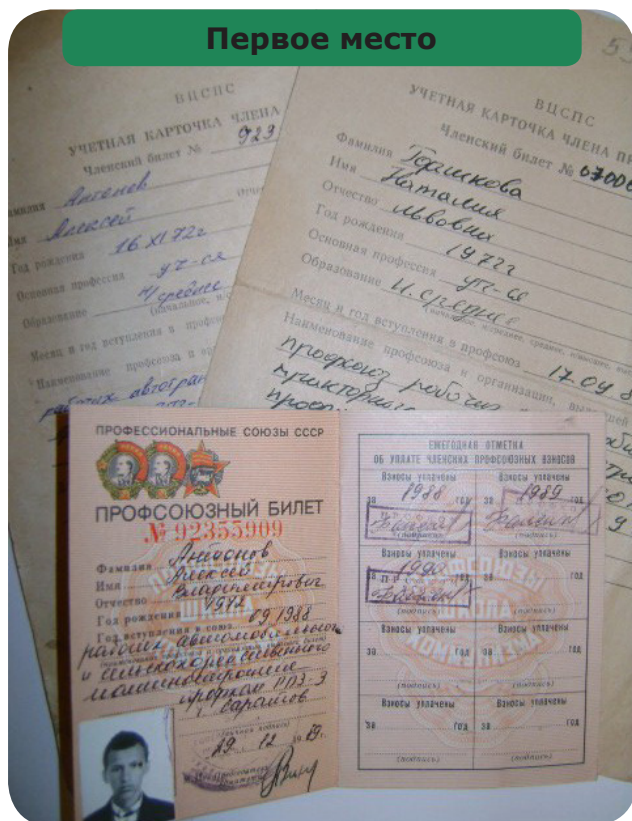 Первое место
ВЦСПС
УЧЕТНАЯ КАРТОЧКА ЧЛЕНА
Членский билет № 923
Фамилия Антонов
Имя Алексей
Год рождения 16 XI 72г
Основная профессия уч-ся
Образование н/среднее
(начальное, н/с
Месяц и год вступления в профсоюз
Наименование профсоюза и
рабочих автотран
53
ВЦСПС
УЧЕТНАЯ КАРТОЧКА ЧЛЕНА ПР
Членский билет № 0700
Фамилия Горшкова
Имя Наталия
Отчество Львовна
Год рождения 1972г
Основная профессия уч-ся
Образование н. средне
(начальное, н/среднее, среднее,
Месяц и год вступления в профсоюз 17.09.8
Наименование профсоюза и организации, выдавшей
профсоюз рабочих
тракторного
ПРОФЕССИОНАЛЬНЫЕ СОЮЗЫ СССР
ПРОФСОЮЗНЫЙ БИЛЕТ
№ 92355909
Фамилия Антонов
Имя Алексей
Отчество Владимирович
Год рождения 1972
Год вступления в союз 09.1988
рабочих автомобильного
и сельскохозяйственного
машиностроения
профком ГПЗ-3
г. Саратов
(личная подпись)
29. 12 1989г.
ЕЖЕГОДНАЯ ОТМЕТКА
ОБ УПЛАТЕ ЧЛЕНСКИХ ПРОФСОЮЗНЫХ ВЗНОСОВ
Взносы уплачены Взносы уплачены
за 1988 год за 1989 год
(подпись) (подпись)
Взносы уплачены Взносы уплачены
за 1990 год за год
(подпись) (подпись)
Взносы уплачены Взносы уплачены
за год за год
(подпись) (подпись)
Взносы уплачены Взносы уплачены
за год за год
(подпись) (подпись)